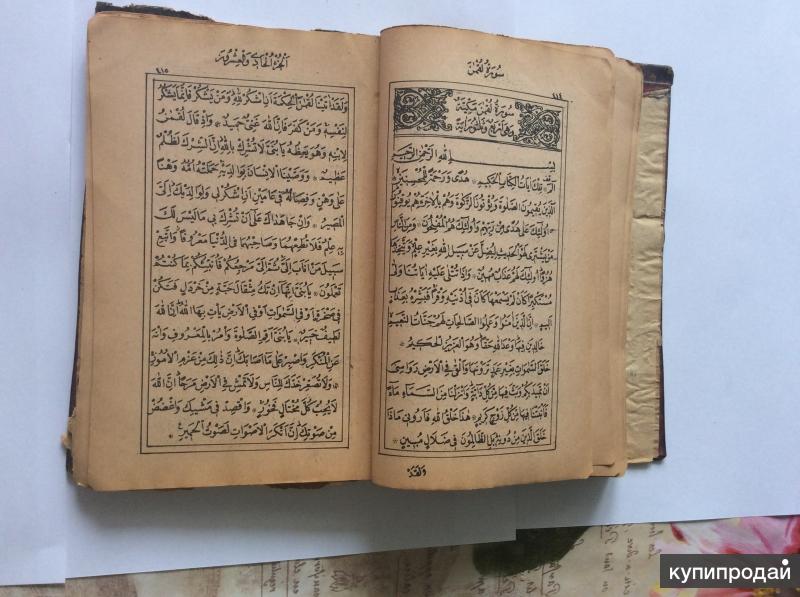 سورة لقمن
٤١٤
سُورَةُ لُقمٰنَ مَكِيَّة
وَهِيَ اَرْبَعٌ وَثَلٰثُونَ اٰيَة
بِسْمِ اللهِ الرَّحْمٰنِ الرَّحِيمِ
الٓمٓ * تِلْكَ اٰيَاتُ الْكِتَابِ الْحَكِيمِ * هُدًى وَرَحْمَةً لِلْمُحْسِنِينَ *
الَّذِينَ يُقِيمُونَ الصَّلٰوةَ وَيُؤْتُونَ الزَّكٰوةَ وَهُمْ بِالْاٰخِرَةِ هُمْ يُوقِنُونَ
* اُولٰئِكَ عَلٰى هُدًى مِنْ رَبِّهِمْ وَاُولٰئِكَ هُمُ الْمُفْلِحُونَ * وَمِنَ النَّاسِ
مَنْ يَشْتَرِي لَهْوَ الْحَدِيثِ لِيُضِلَّ عَنْ سَبِيلِ اللهِ بِغَيْرِ عِلْمٍ وَيَتَّخِذَهَا
هُزُوًا اُولٰئِكَ لَهُمْ عَذَابٌ مُهِينٌ * وَاِذَا تُتْلٰى عَلَيْهِ اٰيَاتُنَا وَلّٰى
مُسْتَكْبِرًا كَاَنْ لَمْ يَسْمَعْهَا كَاَنَّ فِي اُذُنَيْهِ وَقْرًا فَبَشِّرْهُ بِعَذَابٍ
اَلِيمٍ * اِنَّ الَّذِينَ اٰمَنُوا وَعَمِلُوا الصَّالِحَاتِ لَهُمْ جَنَّاتُ النَّعِيمِ
خَالِدِينَ فِيهَا وَعْدَ اللهِ حَقًّا وَهُوَ الْعَزِيزُ الْحَكِيمُ *
خَلَقَ السَّمٰوَاتِ بِغَيْرِ عَمَدٍ تَرَوْنَهَا وَاَلْقٰى فِي الْاَرْضِ رَوَاسِيَ
اَنْ تَمِيدَ بِكُمْ وَبَثَّ فِيهَا مِنْ كُلِّ دَابَّةٍ وَاَنْزَلْنَا مِنَ السَّمَاءِ مَاءً
فَاَنْبَتْنَا فِيهَا مِنْ كُلِّ زَوْجٍ كَرِيمٍ * هٰذَا خَلْقُ اللهِ فَاَرُونِي مَاذَا
خَلَقَ الَّذِينَ مِنْ دُونِهِ بَلِ الظَّالِمُونَ فِي ضَلَالٍ مُبِينٍ *
وَلَقَدْ
الجزء الحادي والعشرون
٤١٥
وَلَقَدْ اٰتَيْنَا لُقْمٰنَ الْحِكْمَةَ اَنِ اشْكُرْ لِلّٰهِ وَمَنْ يَشْكُرْ فَاِنَّمَا يَشْكُرُ
لِنَفْسِهِ وَمَنْ كَفَرَ فَاِنَّ اللهَ غَنِيٌّ حَمِيدٌ * وَاِذْ قَالَ لُقْمٰنُ
لِابْنِهِ وَهُوَ يَعِظُهُ يَا بُنَيَّ لَا تُشْرِكْ بِاللهِ اِنَّ الشِّرْكَ لَظُلْمٌ
عَظِيمٌ * وَوَصَّيْنَا الْاِنْسَانَ بِوَالِدَيْهِ حَمَلَتْهُ اُمُّهُ وَهْنًا
عَلٰى وَهْنٍ وَفِصَالُهُ فِي عَامَيْنِ اَنِ اشْكُرْ لِي وَلِوَالِدَيْكَ اِلَيَّ
الْمَصِيرُ * وَاِنْ جَاهَدَاكَ عَلٰى اَنْ تُشْرِكَ بِي مَا لَيْسَ لَكَ
بِهِ عِلْمٌ فَلَا تُطِعْهُمَا وَصَاحِبْهُمَا فِي الدُّنْيَا مَعْرُوفًا وَاتَّبِعْ
سَبِيلَ مَنْ اَنَابَ اِلَيَّ ثُمَّ اِلَيَّ مَرْجِعُكُمْ فَاُنَبِّئُكُمْ بِمَا كُنْتُمْ
تَعْمَلُونَ * يَا بُنَيَّ اِنَّهَا اِنْ تَكُ مِثْقَالَ حَبَّةٍ مِنْ خَرْدَلٍ فَتَكُنْ
فِي صَخْرَةٍ اَوْ فِي السَّمٰوَاتِ اَوْ فِي الْاَرْضِ يَأْتِ بِهَا اللهُ اِنَّ اللهَ
لَطِيفٌ خَبِيرٌ * يَا بُنَيَّ اَقِمِ الصَّلٰوةَ وَأْمُرْ بِالْمَعْرُوفِ وَانْهَ
عَنِ الْمُنْكَرِ وَاصْبِرْ عَلٰى مَا اَصَابَكَ اِنَّ ذٰلِكَ مِنْ عَزْمِ الْاُمُورِ
* وَلَا تُصَعِّرْ خَدَّكَ لِلنَّاسِ وَلَا تَمْشِ فِي الْاَرْضِ مَرَحًا اِنَّ اللهَ
لَا يُحِبُّ كُلَّ مُخْتَالٍ فَخُورٍ * وَاقْصِدْ فِي مَشْيِكَ وَاغْضُضْ
مِنْ صَوْتِكَ اِنَّ اَنْكَرَ الْاَصْوَاتِ لَصَوْتُ الْحَمِيرِ *
купипродай